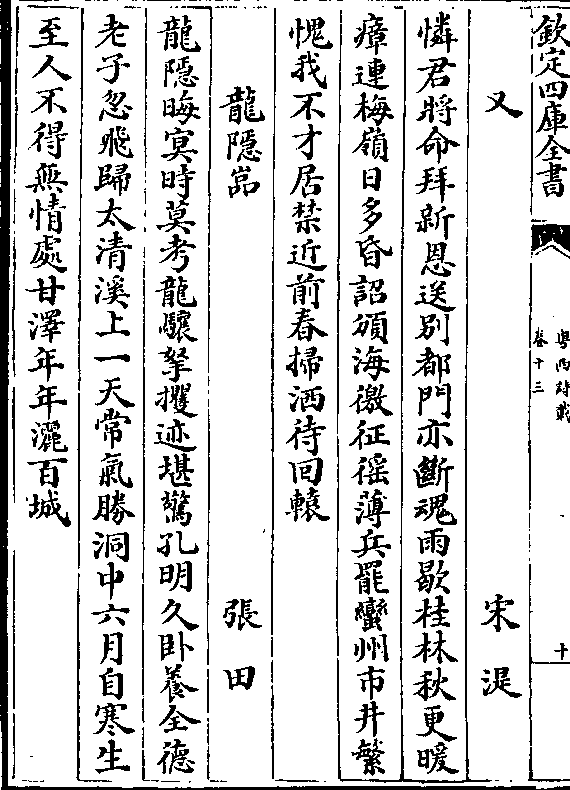 欽定四庫全書
粵西詩載
卷十三
十
又 宋湜
憐君將命拜新恩送別都門亦斷魂雨歇桂林秋更暖
瘴連梅嶺日多昏詔頒海徼征徭薄兵罷蠻州市井繁
愧我不才居禁近前春掃洒待回轅
龍隱嵓 張田
龍隱晦冥時莫考龍驤拏攫迹堪驚孔明久卧養全德
老子忽飛歸太清溪上一天常氣勝洞中六月自寒生
至人不得無情處甘澤年年灑百城